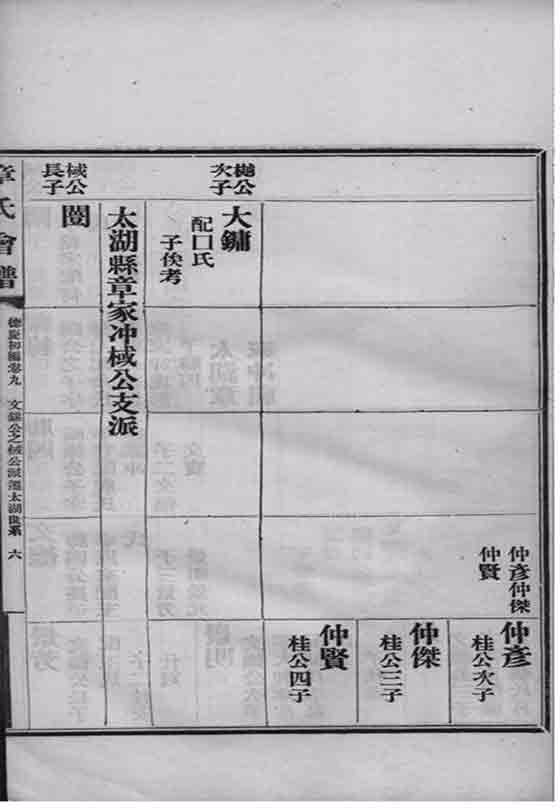 仲彥仲傑
仲賢
仲彥
桂公次子
仲傑
桂公三子
仲賢
桂公四子
樾公
次子
大鏞
配囗氏
子俟考
太湖縣章家冲棫公支派
棫公
長子
闓
章氏會譜
德慶初編卷九
文鎮公之棫公派遷太湖世系
六